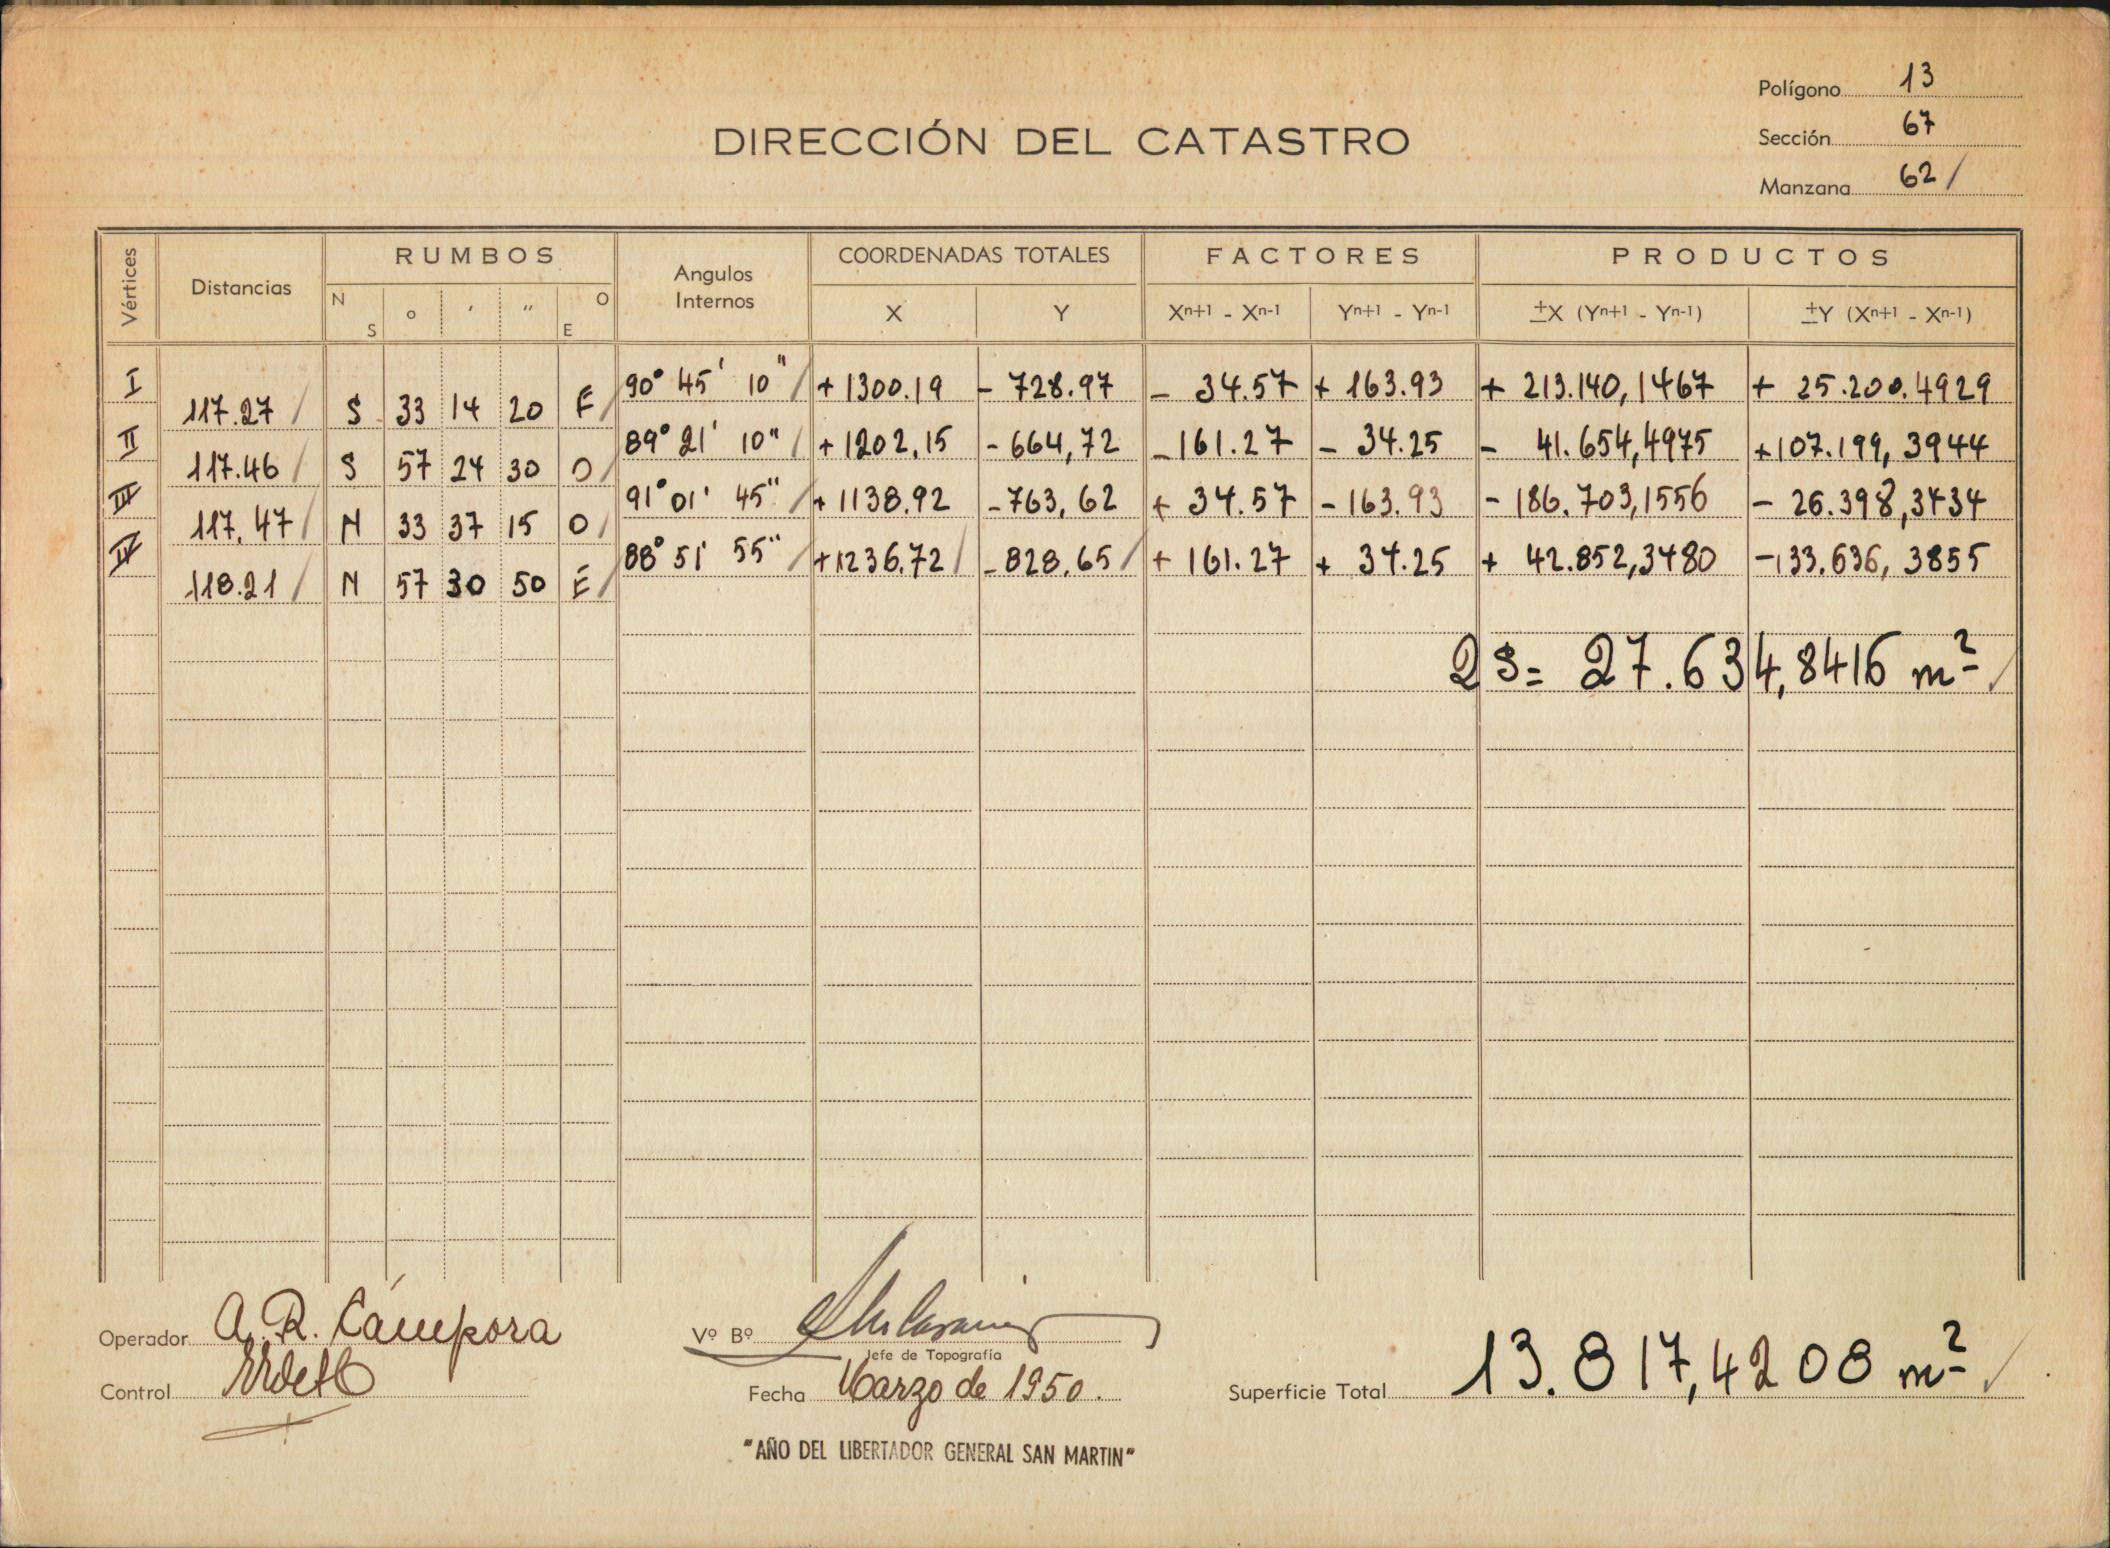 Polígono 13
DIRECCIÓN DEL CATASTRO
Sección 67
Manzana 62 /
Vértices Distancias RUMBOS Angulos Internos COORDENADAS TOTALES FACTORES PRODUCTOS
N S o ' " O E X Y Xn+1 - Xn-1 Yn+1 - Yn-1 ±X (Yn+1 - Yn-1) ±Y (Xn+1 - Xn-1)
I 90° 45' 10" / + 1300.19 - 728.97 - 34.57 + 163.93 + 213.140,1467 + 25.200.4929
117.27 / S 33 14 20 E /
II 89° 21' 10" / + 1202,15 - 664,72 - 161.27 - 34.25 - 41.654,4975 + 107.199,3944
117.46 / S 57 24 30 O /
III 91° 01' 45" / + 1138.92 - 763,62 + 34.57 - 163.93 - 186.703,1556 - 26.398,3434
117.47 / N 33 37 15 O /
IV 88° 51' 55" / + 1236.72 / - 828.65 / + 161.27 + 34.25 + 42.852,3480 - 133.636,3855
118.21 / N 57 30 50 E /
2S= 27.634,8416 m² /
Operador A. R. Cámpora
Vº Bº
Jefe de Topografía
Control
Fecha Marzo de 1950.
Superficie Total 13.817,4208 m² /
"AÑO DEL LIBERTADOR GENERAL SAN MARTIN"